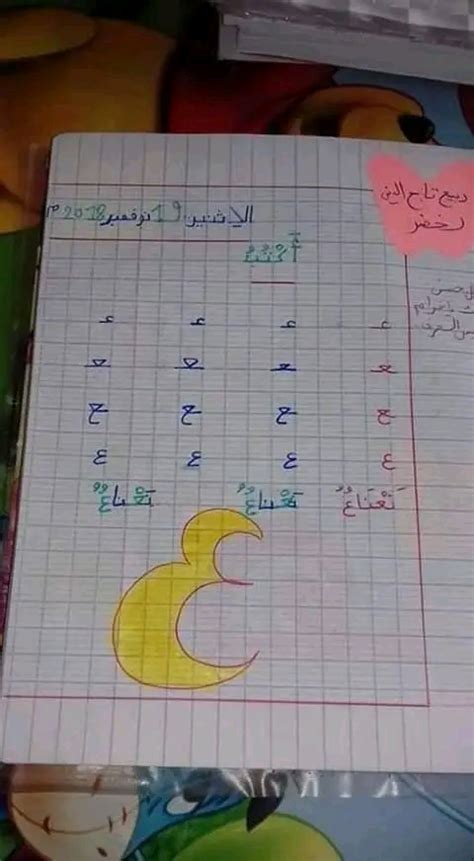 ربيع تاج الدين
لخضر
الإثنين 19 نوفمبر 2018 م
أَكْتُبُ
عـ عـ عـ عـ
ـعـ ـعـ ـعـ ـعـ
ـع ـع ـع ـع
ع ع ع ع
نَعْنَاعٌ نَعْنَاعٌ نَعْنَاعٌ
ع